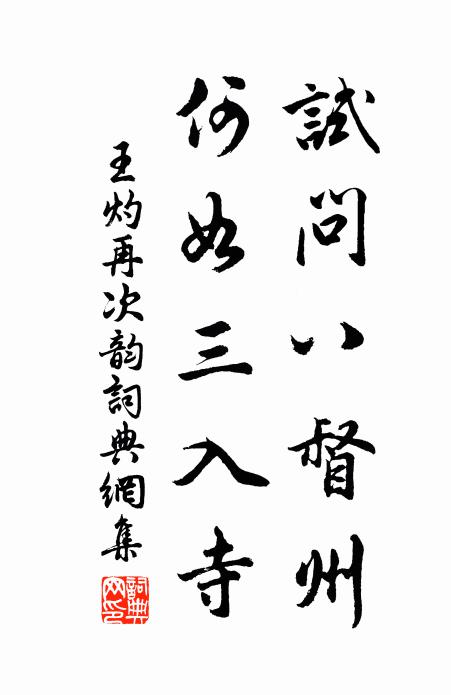 試問八督州
何如三入寺
王灼再次韵詞典網集
詞典網印